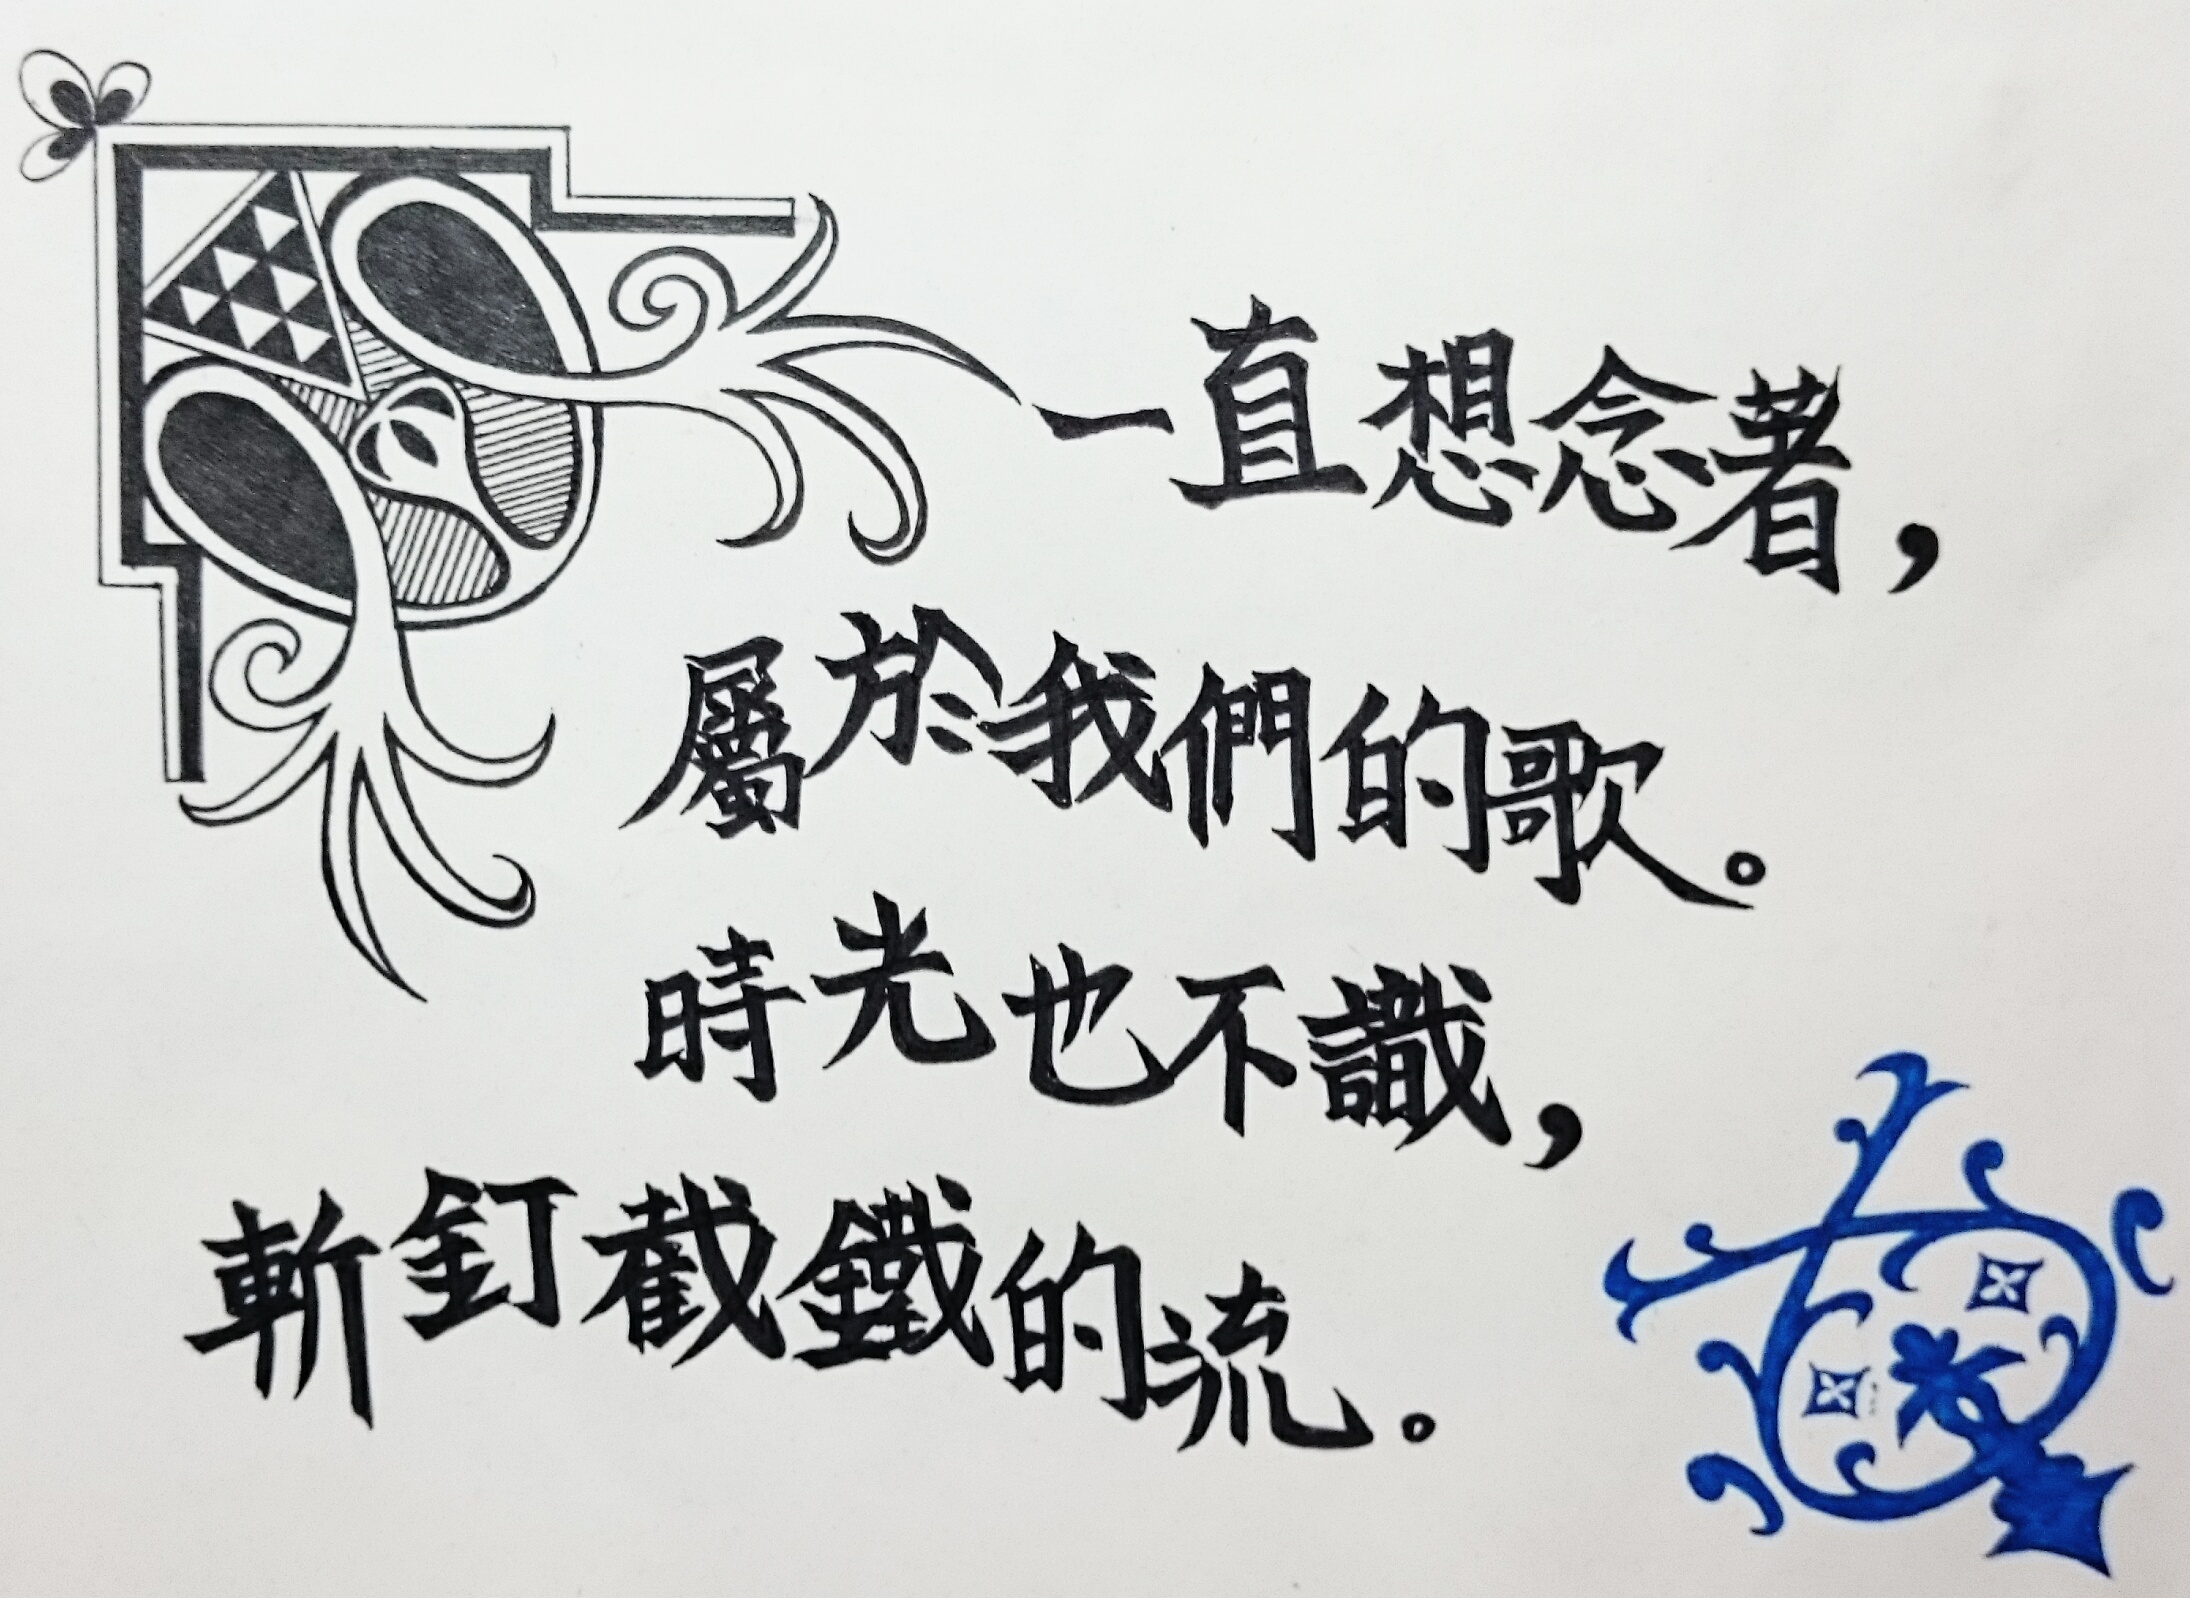 一直想念著,
屬於我們的歌。
時光也不識,
斬釘截鐵的流。